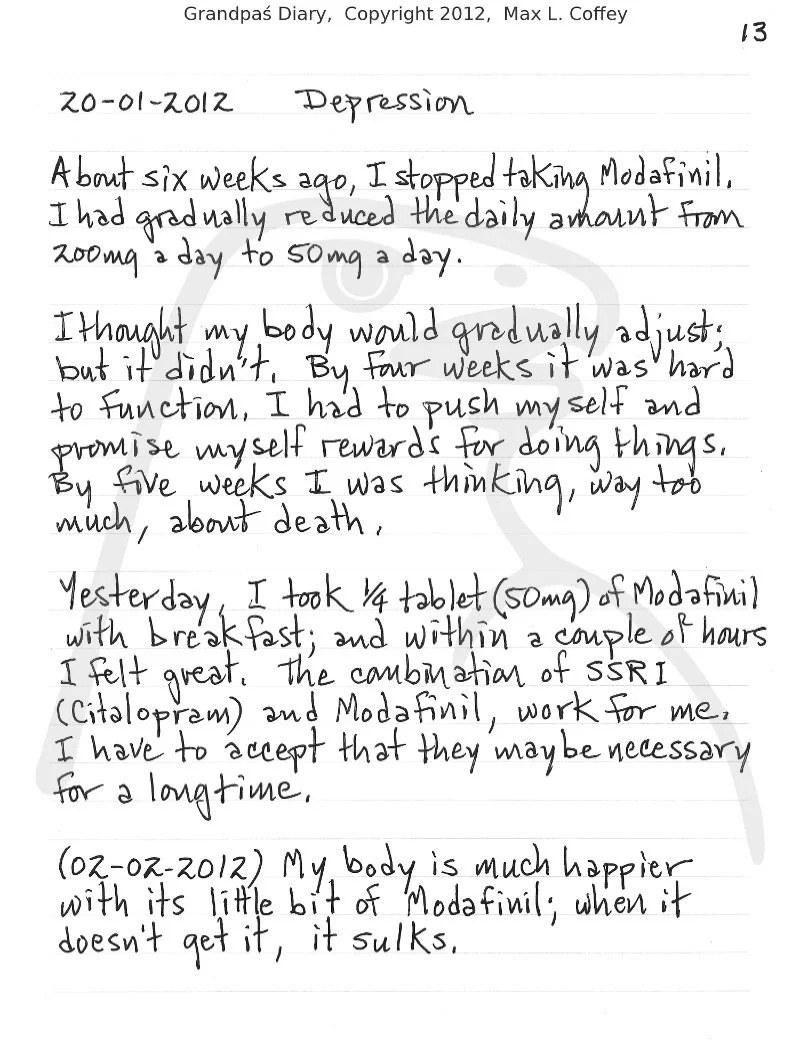 Grandpaś Diary, Copyright 2012, Max L. Coffey
13
20-01-2012 Depression
About six weeks ago, I stopped taking Modafinil.
I had gradually reduced the daily amount from
200mg a day to 50mg a day.
I thought my body would gradually adjust;
but it didn't. By four weeks it was hard
to function. I had to push myself and
promise myself rewards for doing things.
By five weeks I was thinking, way too
much, about death.
Yesterday, I took 1/4 tablet (50mg) of Modafinil
with breakfast; and within a couple of hours
I felt great. The combination of SSRI
(Citalopram) and Modafinil, work for me.
I have to accept that they maybe necessary
for a longtime.
(02-02-2012) My body is much happier
with its little bit of Modafinil; when it
doesn't get it, it sulks.